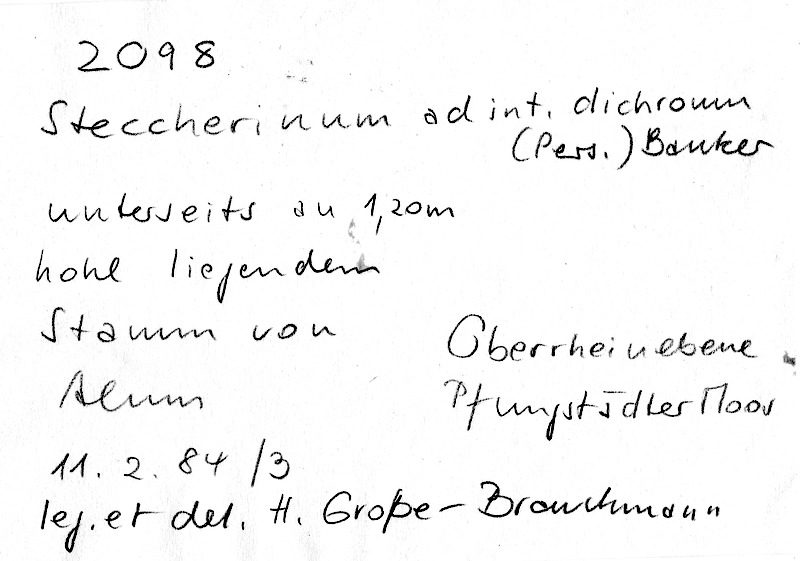 2098
Steccherinum ad int. dichroum
(Pers.) Banker
unterseits an 1,20m
hohl liegendem
Stamm von
Alnus
Oberrheinebene
Pfungstädter Moor
11. 2. 84 /3
leg. et det. H. Große-Brauckmann